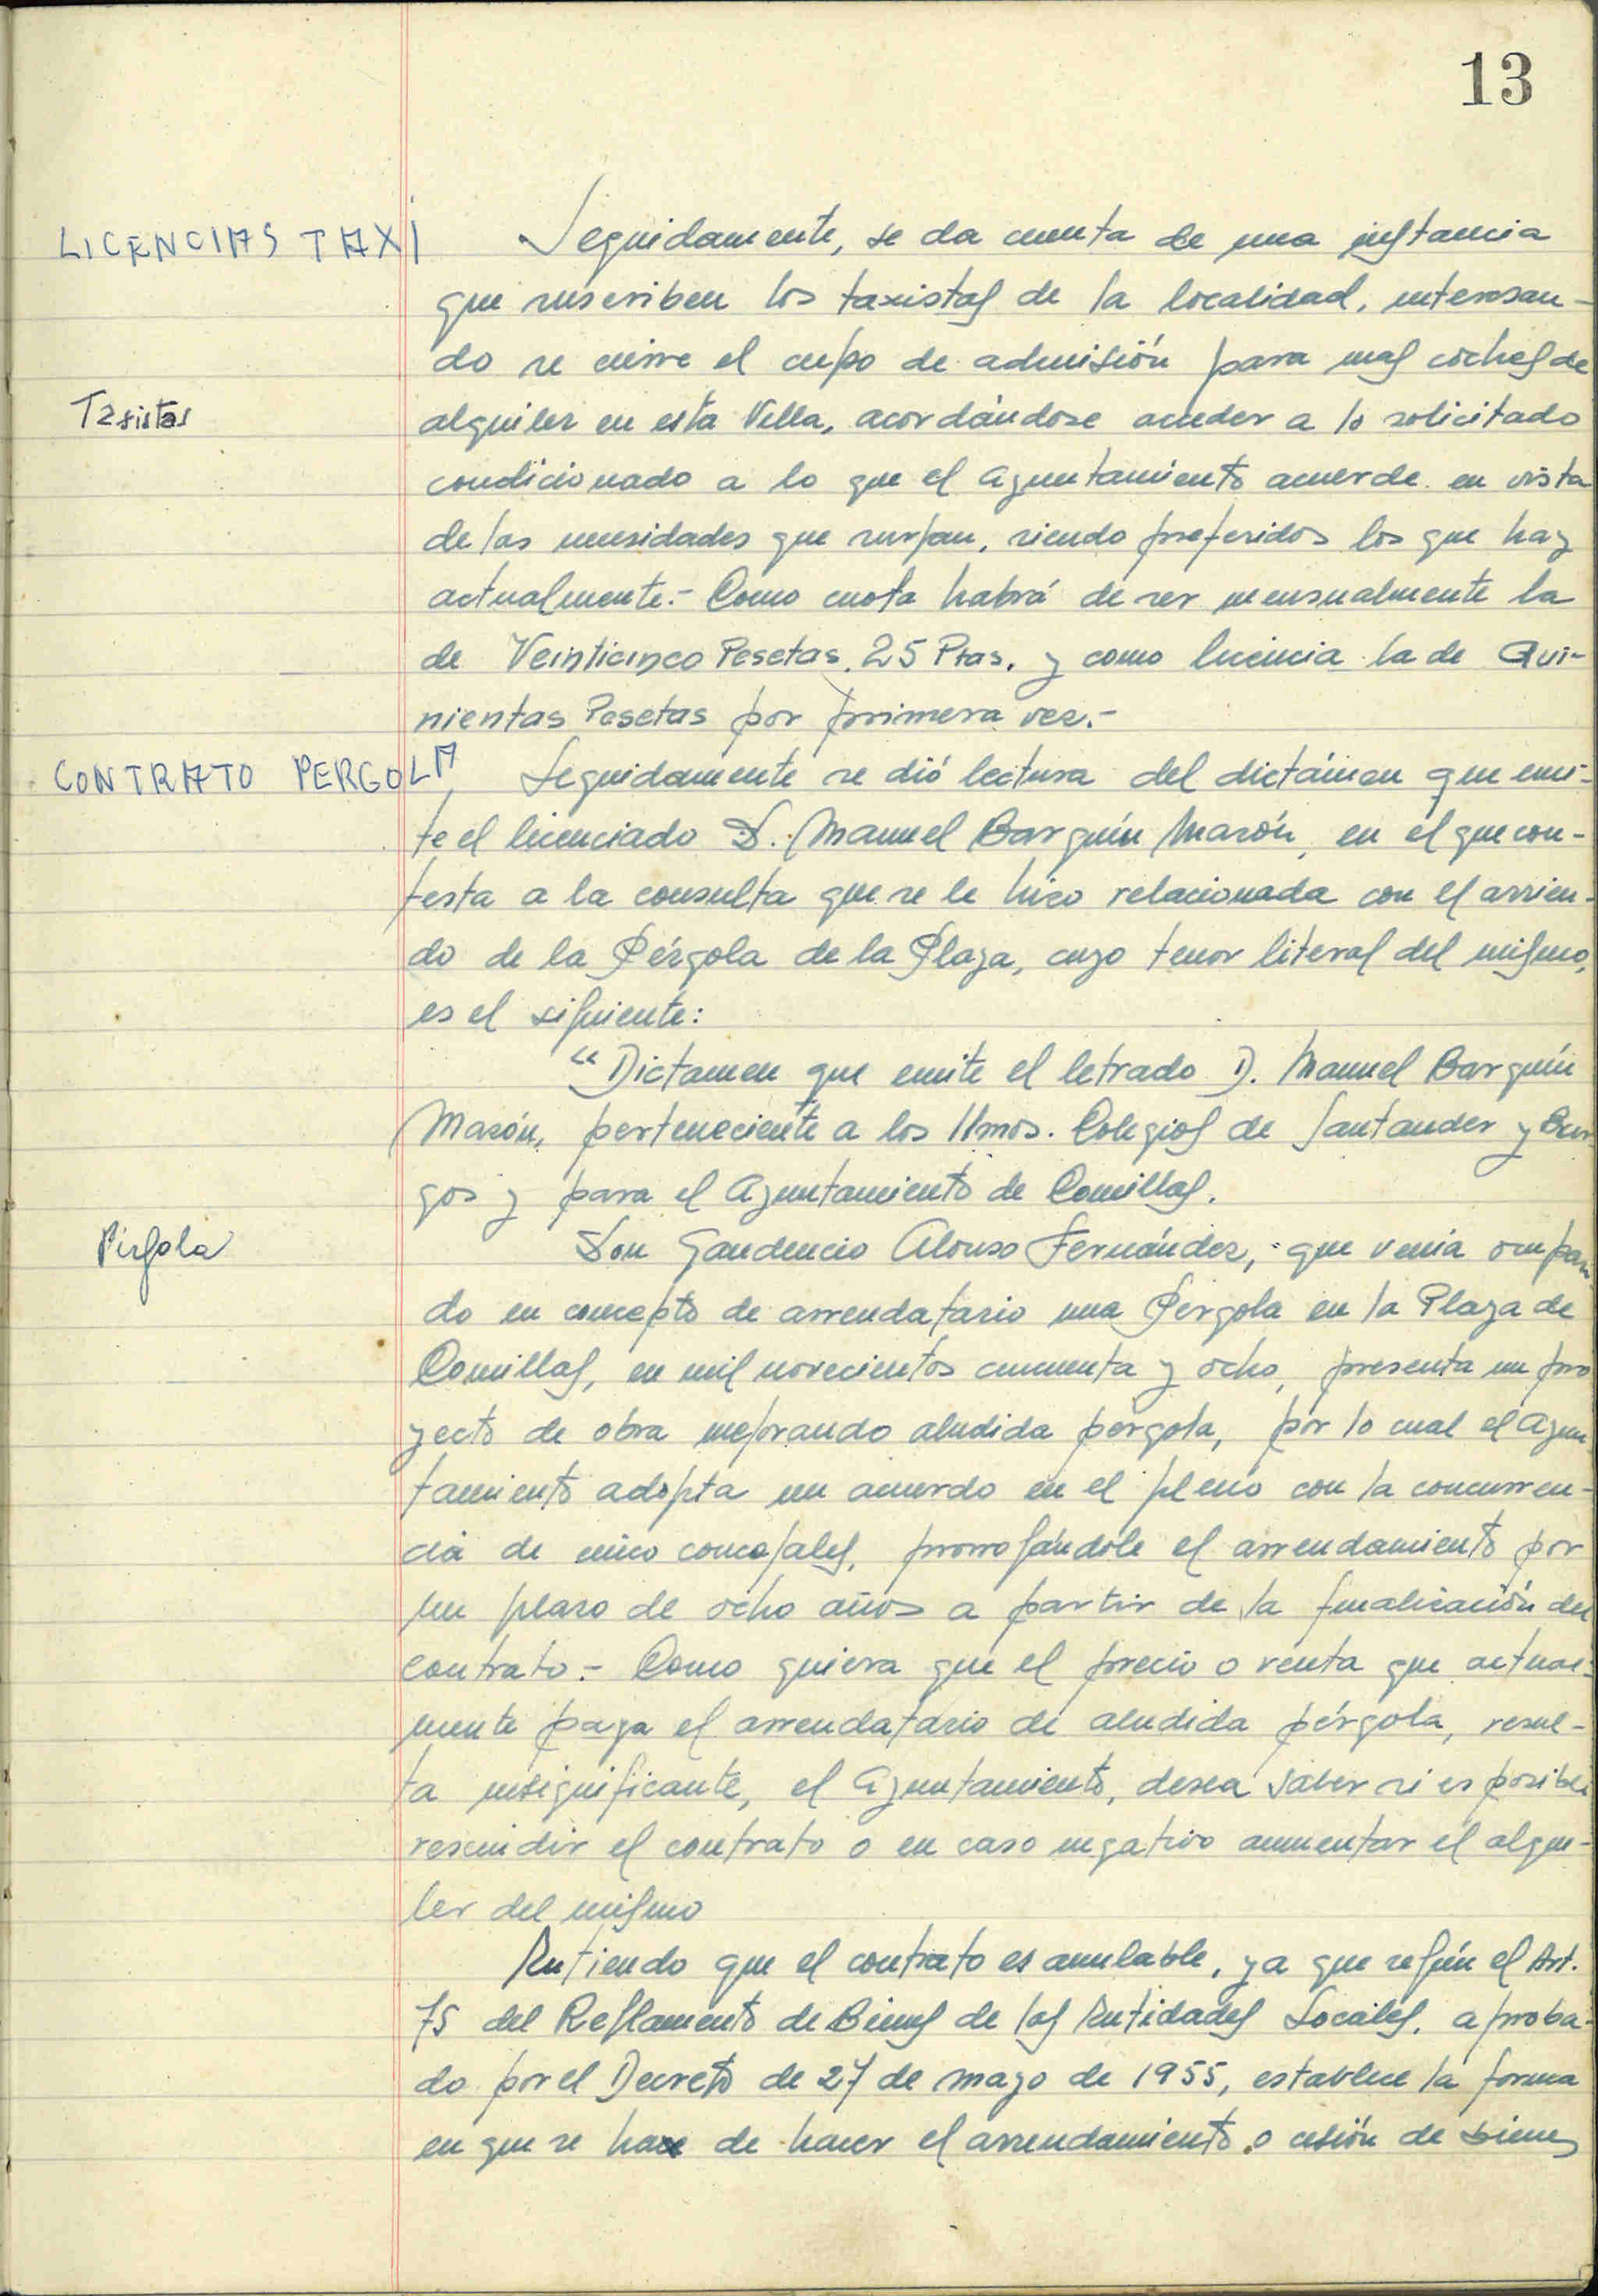 13
LICENCIAS TAXI
Seguidamente, se da cuenta de una instancia
que suscriben los taxistas de la localidad, interesan-
do se cierre el cupo de admisión para mas coches de
Taxistas
alquiler en esta Villa, acordándose acceder a lo solicitado
condicionado a lo que el Ayuntamiento acuerde en vista
de las necesidades que surjan, siendo preferidos los que hay
actualmente.- Como cuota habrá de ser mensualmente la
de Veinticinco Pesetas, 25 Ptas. y como licencia la de Qui-
nientas Pesetas por primera vez.-
CONTRATO PERGOLA
Seguidamente se dió lectura del dictámen que emi-
te el licenciado D. Manuel Barquín Mazón, en el que con-
testa a la consulta que se le hizo relacionada con el arrien-
do de la Pérgola de la Plaza, cuyo tenor literal del mismo,
es el siguiente:
"Dictamen que emite el letrado D. Manuel Barquín
Mazón, perteneciente a los Ilmos. Colegios de Santander y Bur
gos y para el Ayuntamiento de Comillas.
Pérgola
Don Gaudencio Alonso Fernández, que venia ocupan
do en concepto de arrendatario una Pérgola en la Plaza de
Comillas, en mil novecientos cincuenta y ocho, presenta un pro
yecto de obra mejorando aludida pérgola, por lo cual el Ayun
tamiento adopta un acuerdo en el pleno con la concurren-
cia de cinco concejales, prorrogándole el arrendamiento por
un plazo de ocho años a partir de la finalización del
contrato.- Como quiera que el precio o renta que actual-
mente paga el arrendatario de aludida pérgola, resul-
ta insignificante, el Ayuntamiento, desea saber si es posible
rescindir el contrato o en caso negativo aumentar el alqui-
ler del mismo
Entiendo que el contrato es anulable, ya que según el Art.
75 del Reglamento de Bienes de las Entidades Locales, aproba-
do por el Decreto de 27 de mayo de 1955, establece la forma
en que se hace de hacer el arrendamiento o cesión de bienes